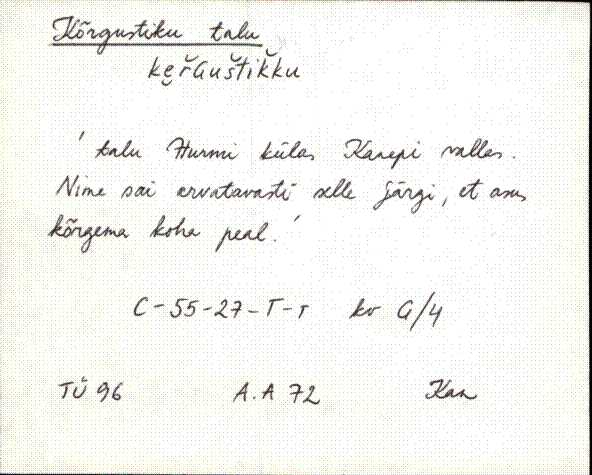 Kõrgustiku talu
ke̮řGušťikku
' talu Hurmi külas Kanepi vallas.
Nime sai arvatavasti selle järgi, et asus
kõrgema koha peal.'
C-55-27-T-T kv G/4
TÜ 96 A.A 72 Kan